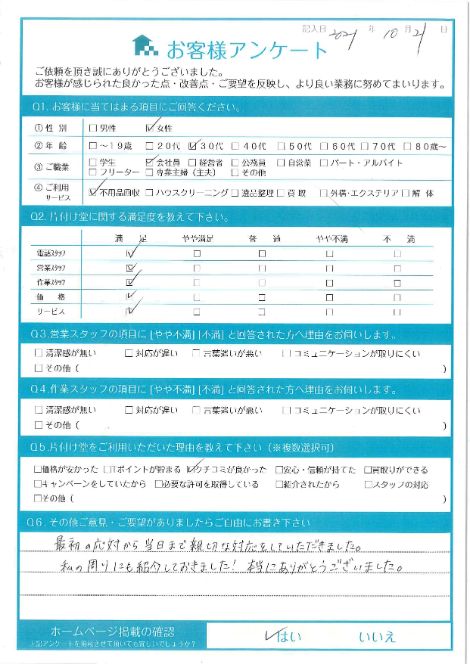 記入日 2021 年 10 月 21 日
お客様アンケート
ご依頼を頂き誠にありがとうございました。
お客様が感じられた良かった点・改善点・ご要望を反映し、より良い業務に努めてまいります。
Q1. お客様に当てはまる項目にご回答ください。
①性 別 □男性 ☑女性
②年 齢 □～19歳 □20代 ☑30代 □40代 □50代 □60代 □70代 □80歳～
③ご職業 □学生 ☑会社員 □経営者 □公務員 □自営業 □パート・アルバイト
□フリーター □専業主婦（主夫） □その他
④ご利用サービス ☑不用品回収 □ハウスクリーニング □遺品整理 □買取 □外構・エクステリア □解体
Q2. 片付け堂に関する満足度を教えて下さい。
満 足 やや満足 普 通 やや不満 不 満
電話スタッフ ☑ □ □ □ □
営業スタッフ ☑ □ □ □ □
作業スタッフ ☑ □ □ □ □
価 格 ☑ □ □ □ □
サービス ☑ □ □ □ □
Q3. 営業スタッフの項目に [やや不満] [不満] と回答された方へ理由をお伺いします。
□清潔感が無い □対応が遅い □言葉遣いが悪い □コミュニケーションが取りにくい
□その他（ ）
Q4. 作業スタッフの項目に [やや不満] [不満] と回答された方へ理由をお伺いします。
□清潔感が無い □対応が遅い □言葉遣いが悪い □コミュニケーションが取りにくい
□その他（ ）
Q5. 片付け堂をご利用いただいた理由を教えて下さい（※複数選択可）
□価格が安かった □ポイントが貯まる ☑クチコミが良かった □安心・信頼が持てた □買取りができる
□キャンペーンをしていたから □必要な許可を取得している □紹介されたから □スタッフの対応
□その他（ ）
Q6. その他ご意見・ご要望がありましたらご自由にお書き下さい
最初の応対から当日まで親切な対応をしていただきました。
私の周りにも紹介しておきました！本当にありがとうございました。
ホームページ掲載の確認
上記アンケートを掲載させて頂いても宜しいでしょうか？
☑はい いいえ